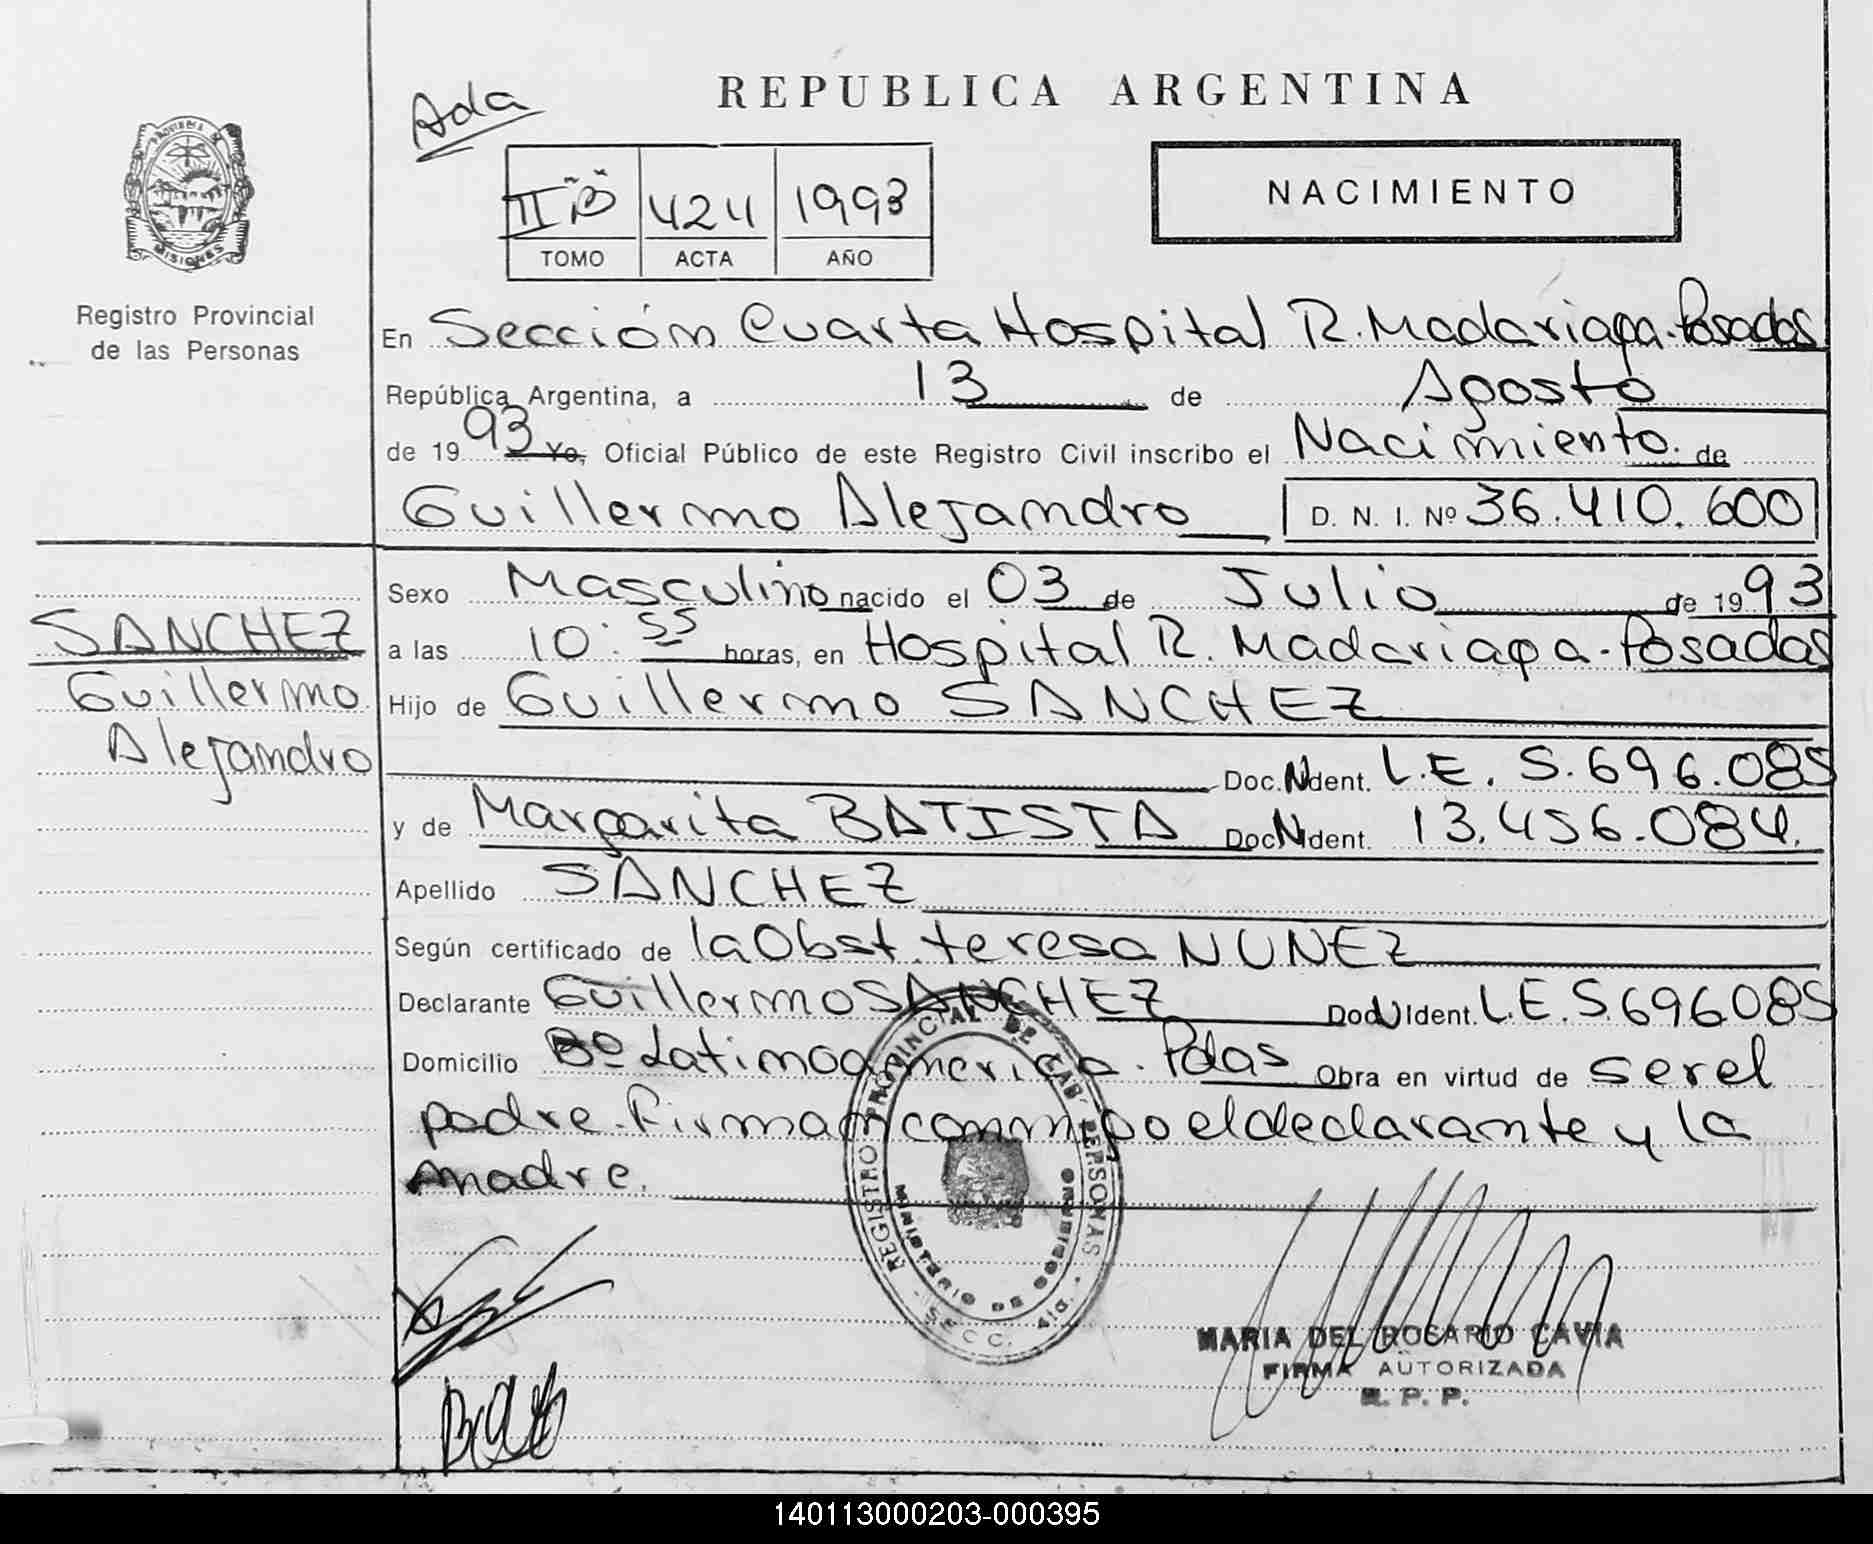 REPUBLICA ARGENTINA
Ada
II "B" 424 1993
TOMO ACTA AÑO
NACIMIENTO
PROVINCIA DE
MISIONES
Registro Provincial
de las Personas
En Sección Cuarta Hospital R. Madariaga-Posadas
República Argentina, a 13 de Agosto
de 1993 Yo, Oficial Público de este Registro Civil inscribo el Nacimiento de
Guillermo Alejandro D. N. I. Nº 36.410.600
Sexo Masculino nacido el 03 de Julio de 1993
a las 10:55 horas, en Hospital R. Madariaga-Posadas
Hijo de Guillermo SANCHEZ
Doc. Ident. L.E. 5.696.085
y de Margarita BATISTA Doc Ident. 13.456.084.
Apellido SANCHEZ
Según certificado de la Obst. teresa NUNEZ
Declarante Guillermo SANCHEZ Doc Ident. L.E. 5.696085
Domicilio Bº Latinoamerica. Pdas Obra en virtud de ser el
padre. Firman conmigo el declarante y la
madre.
SANCHEZ
Guillermo
Alejandro
REGISTRO PROVINCIAL DE LAS PERSONAS
MINISTERIO DE GOBIERNO
SECC. 4ta
MARIA DEL ROSARIO CAVIA
FIRMA AUTORIZADA
R. P. P.
140113000203-000395